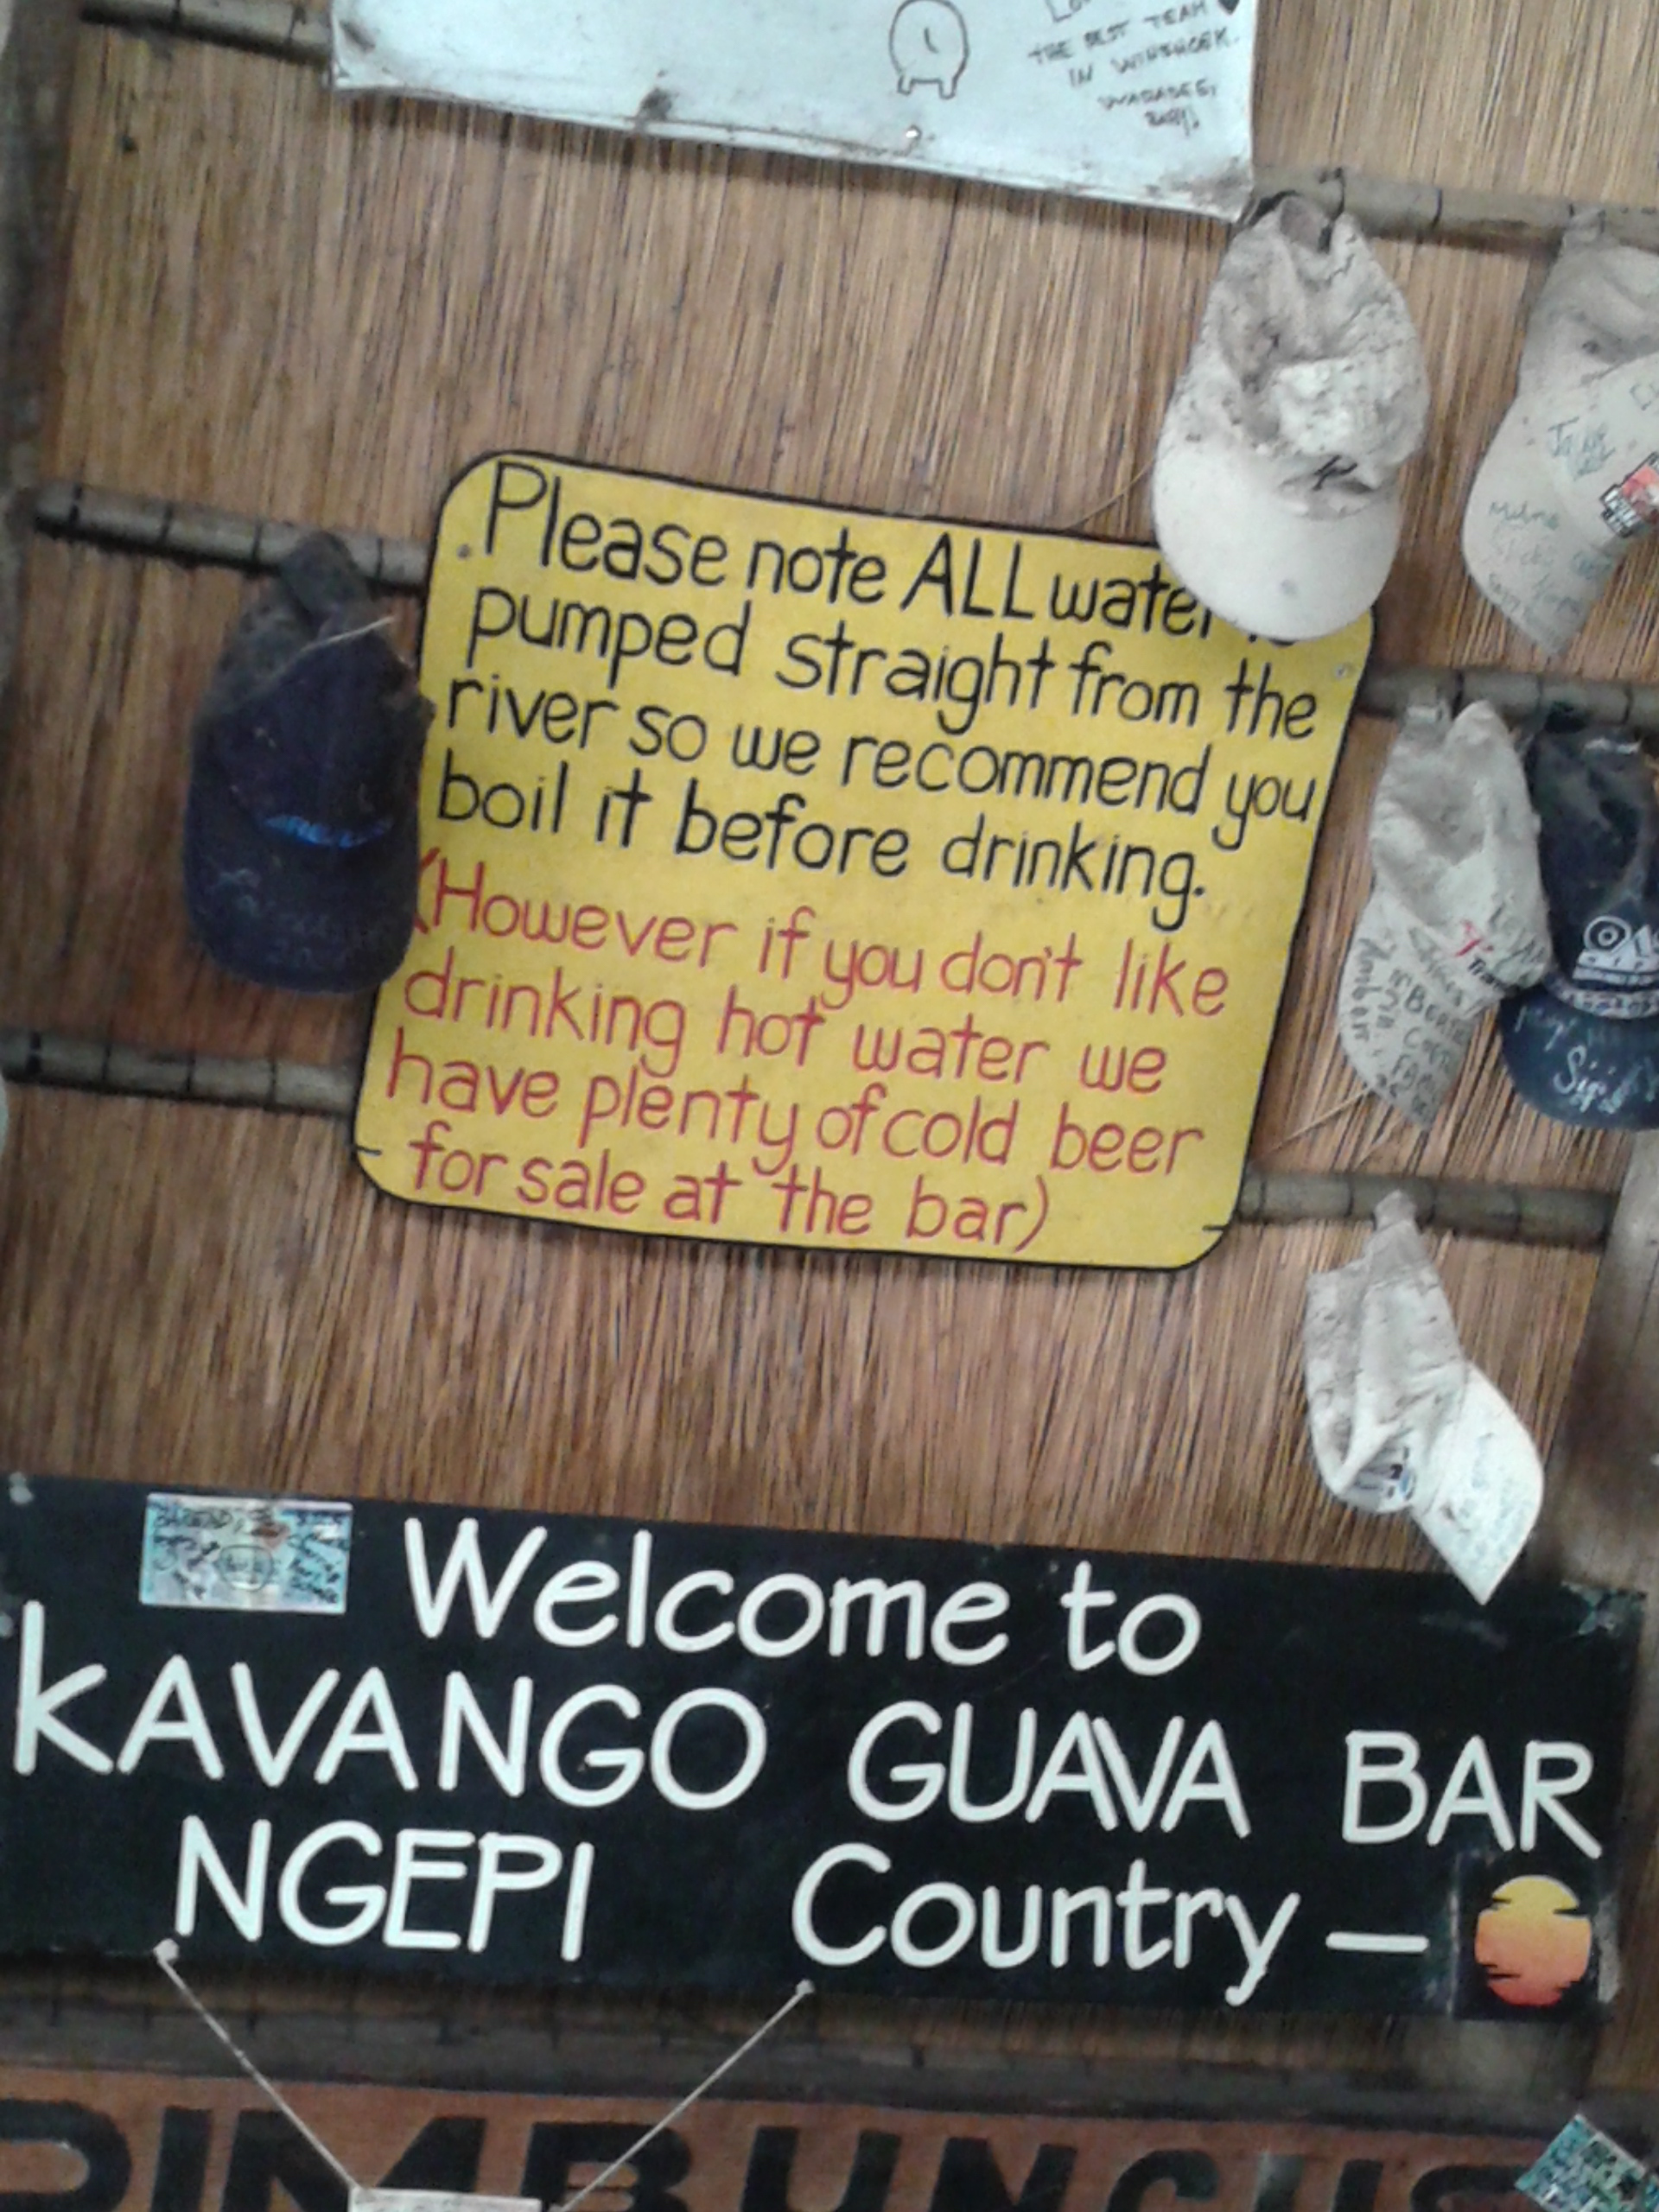 THE BEST TEAM
IN WINDHOEK.
Please note ALL water is
pumped straight from the
river so we recommend you
boil it before drinking.
(However if you don't like
drinking hot water we
have plenty of cold beer
for sale at the bar)
Welcome to
KAVANGO GUAVA BAR
NGEPI Country –